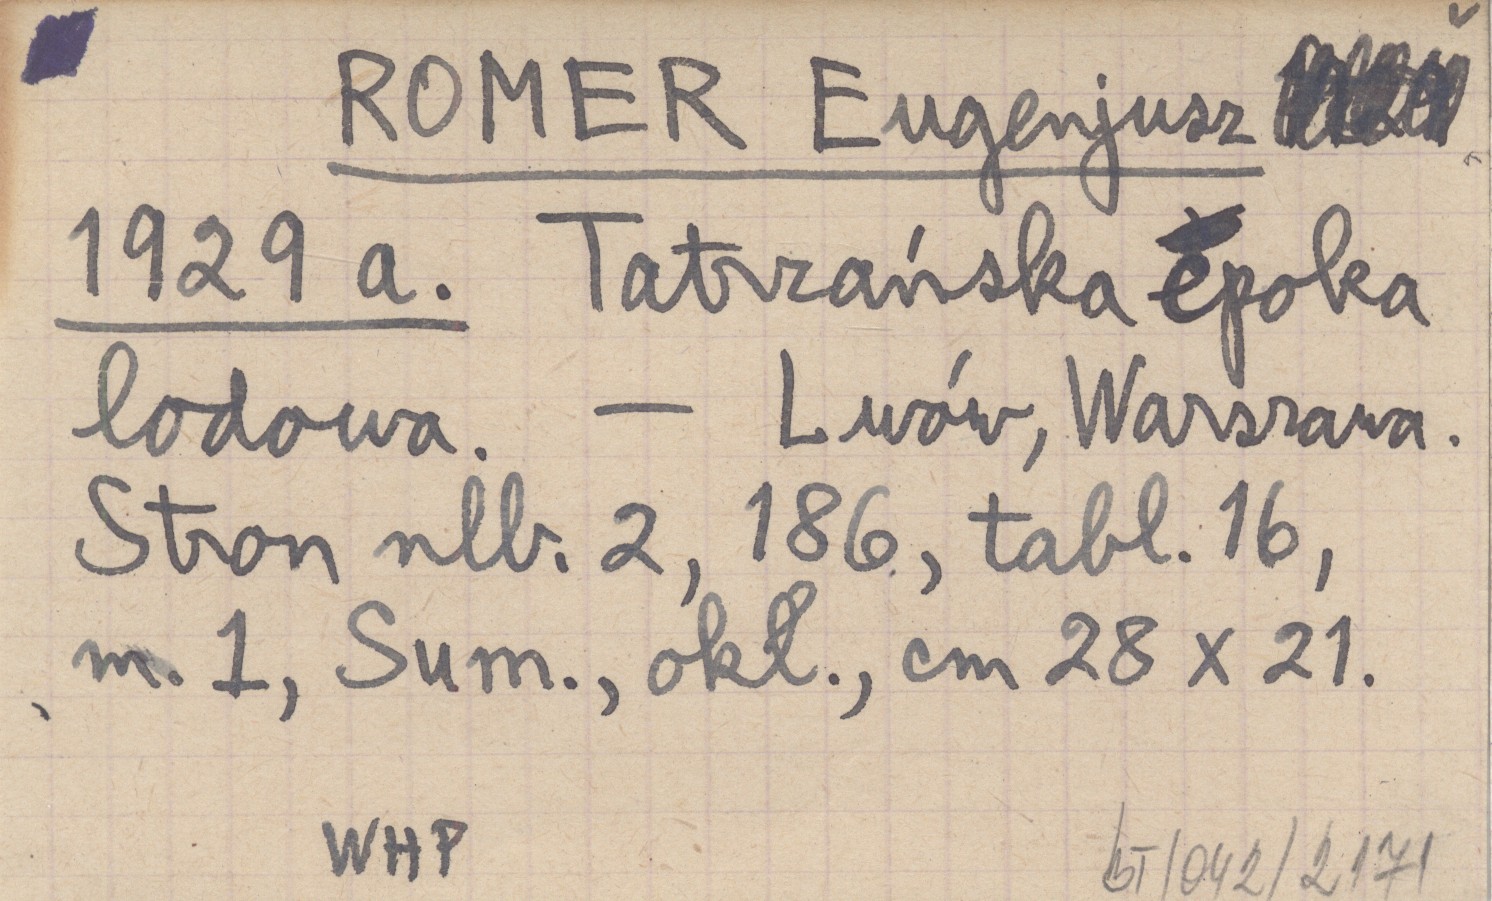 ROMER Eugenjusz
1929 a. Tatrzańska epoka
lodowa. — Lwów, Warszawa.
Stron nlb. 2, 186, tabl. 16,
m. 1, Sum., okł., cm 28 x 21.
WHP
bT/042/2171